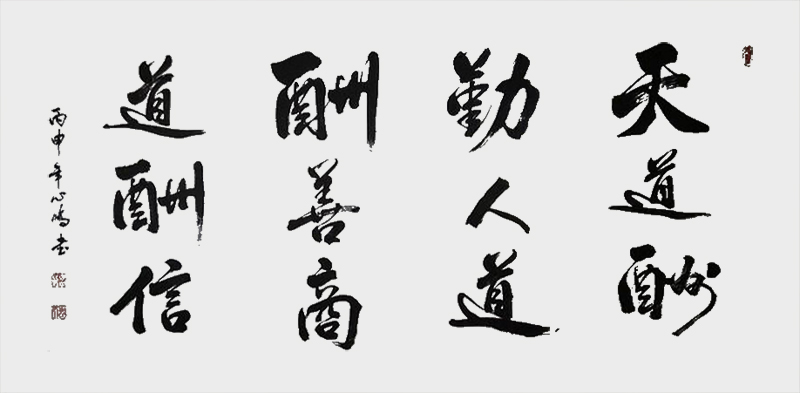 天道酬
勤人道
酬善商
道酬信
丙申年心鸿书